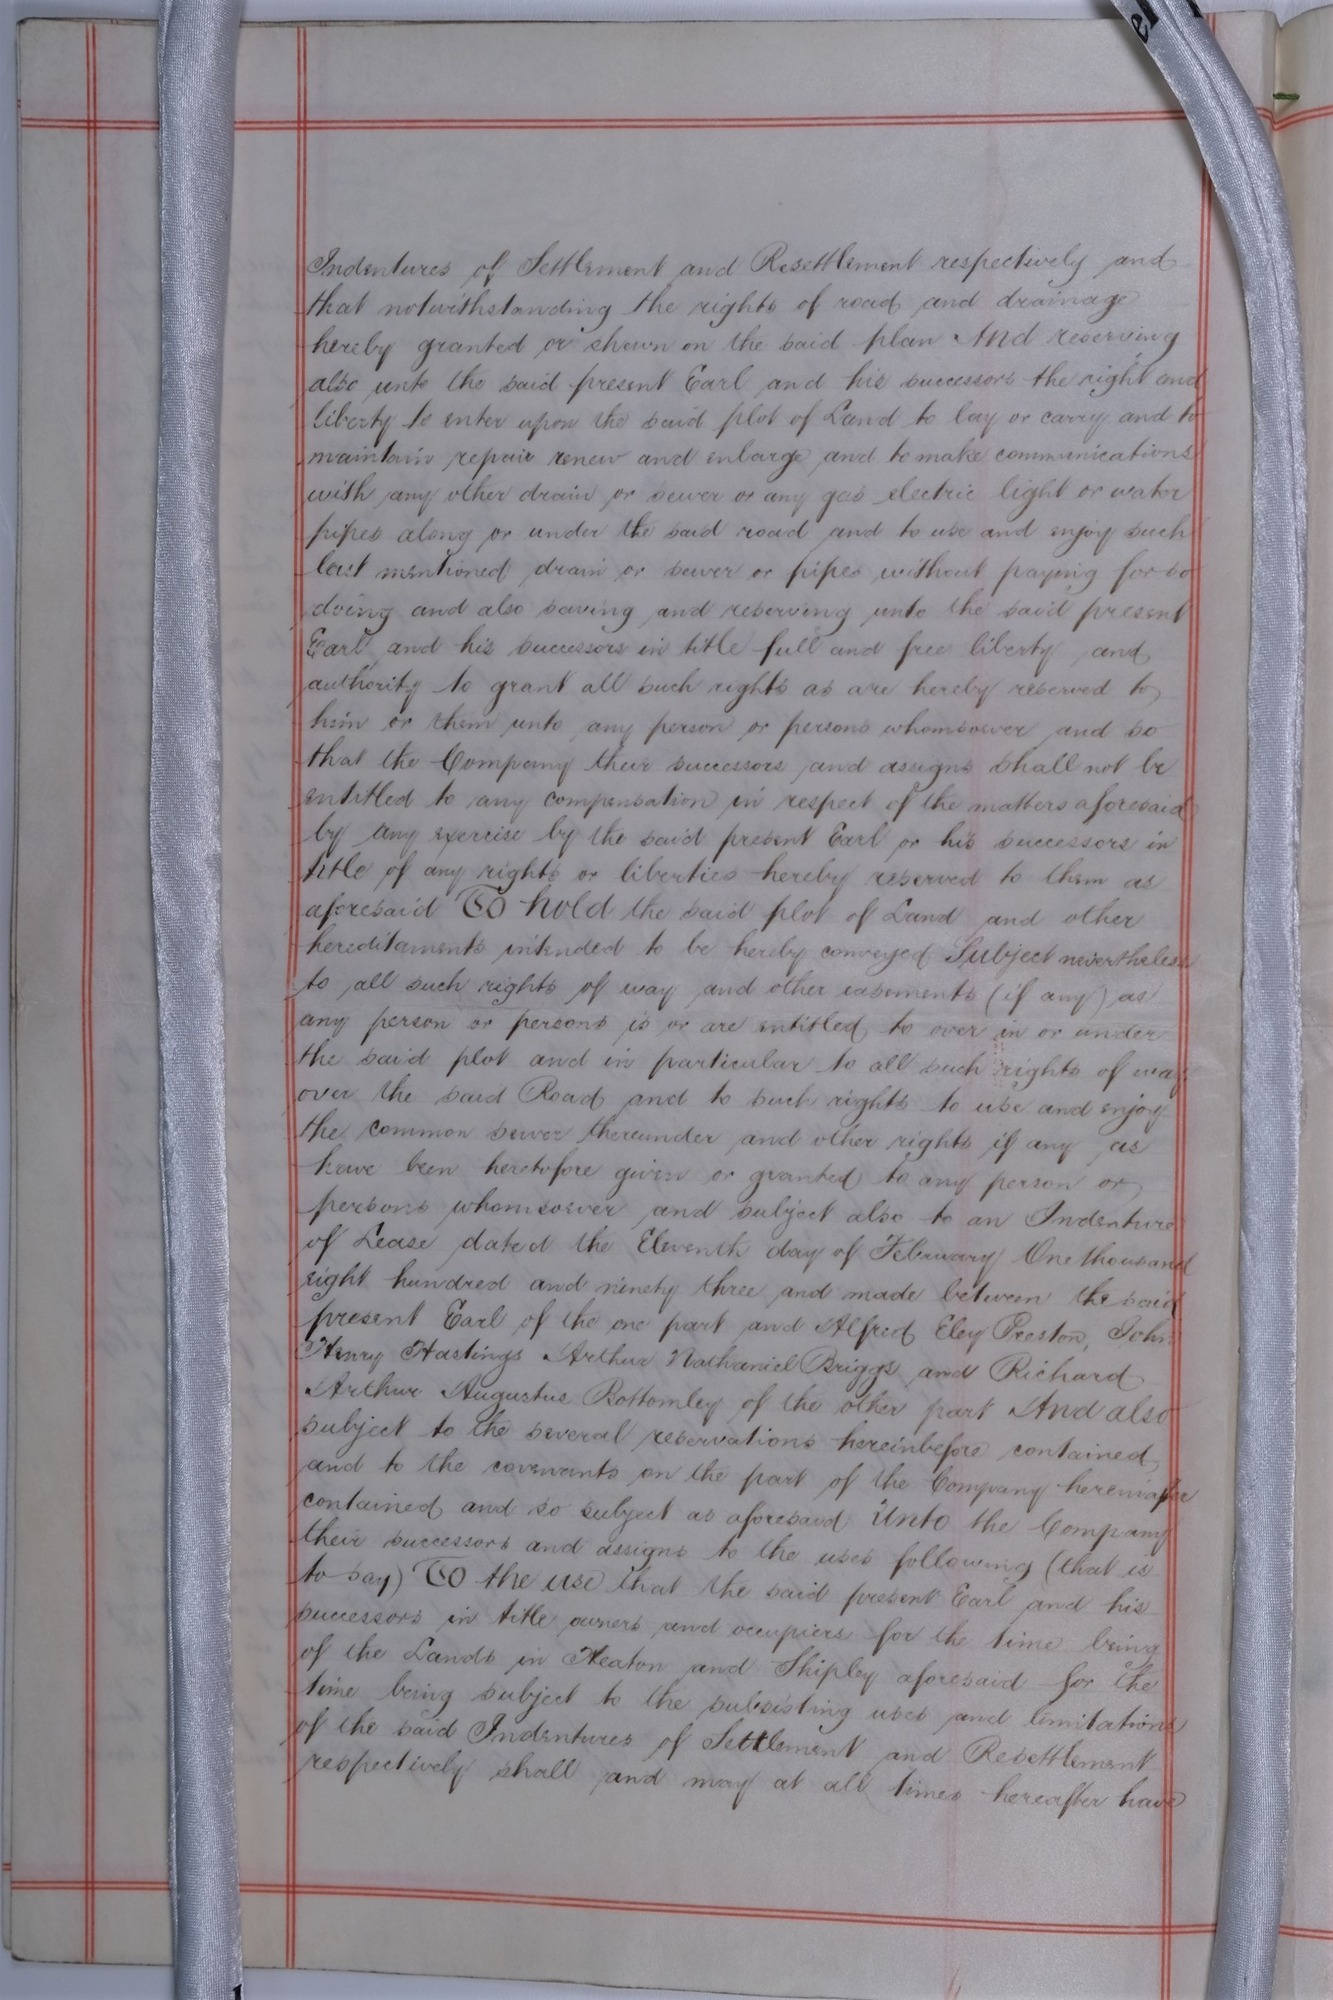 Indentures of Settlement and Resettlement respectively and
that notwithstanding the rights of road and drainage
hereby granted or shewn on the said plan And reserving
also unto the said present Earl and his successors the right and
liberty to enter upon the said plot of Land to lay or carry and to
maintain repair renew and enlarge and to make communications
with any other drain or sewer or any gas electric light or water
pipes along or under the said road and to use and enjoy such
last mentioned drain or sewer or pipes without paying for so
doing and also saving and reserving unto the said present
Earl and his successors in title full and free liberty and
authority to grant all such rights as are hereby reserved to
him or them unto any person or persons whomsoever and so
that the Company their successors and assigns shall not be
entitled to any compensation in respect of the matters aforesaid
by any exercise by the said present Earl or his successors in
title of any rights or liberties hereby reserved to them as
aforesaid To hold the said plot of Land and other
hereditaments intended to be hereby conveyed Subject nevertheless
to all such rights of way and other easements (if any) as
any person or persons is or are entitled to over in or under
the said plot and in particular to all such rights of way
over the said Road and to such rights to use and enjoy
the common sewer thereunder and other rights if any as
have been heretofore given or granted to any person or
persons whomsoever and subject also to an Indenture
of Lease dated the Eleventh day of February One thousand
eight hundred and ninety three and made between the said
present Earl of the one part and Alfred Eley Preston, John
Henry Hastings Arthur Nathaniel Briggs and Richard
Arthur Augustus Bottomley of the other part And also
subject to the several reservations hereinbefore contained
and to the covenants on the part of the Company hereinafter
contained and so subject as aforesaid Unto the Company
their successors and assigns to the uses following (that is
to say) To the use that the said present Earl and his
successors in title owners and occupiers for the time being
of the Lands in Heaton and Shipley aforesaid for the
time being subject to the subsisting uses and limitations
of the said Indentures of Settlement and Resettlement
respectively shall and may at all times hereafter have